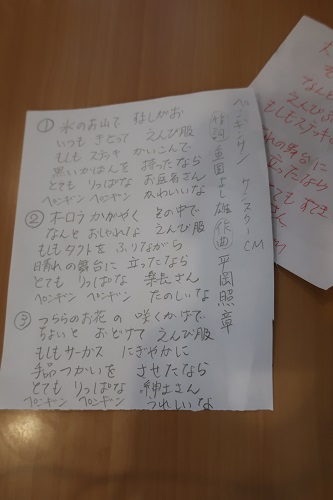 ペンギンサン サニクリーンCM
作詞 重園よし雄 作曲 平岡照章
① 氷のお山で すましがお
いつも きどって えんび服
もしも ステッキ かいこんで
黒いかばんを 持ったなら
とても りっぱな お医者さん
ペンギン ペンギン かわいいな
② オーロラ かがやく 空の中で
なんと おしゃれな えんび服
もしも タクトを ふりながら
晴れの舞台に 立ったなら
とても りっぱな 楽長さん
ペンギン ペンギン たのしいな
③ つららのお花の 咲くかげで
ちょいと おどけて えんび服
もしも サーカス にぎやかに
手品つかいを させたなら
とても りっぱな 紳士さん
ペンギン ペンギン うれしいな
なんと
えんび
もしもステッ
れの舞台に
立ったなら